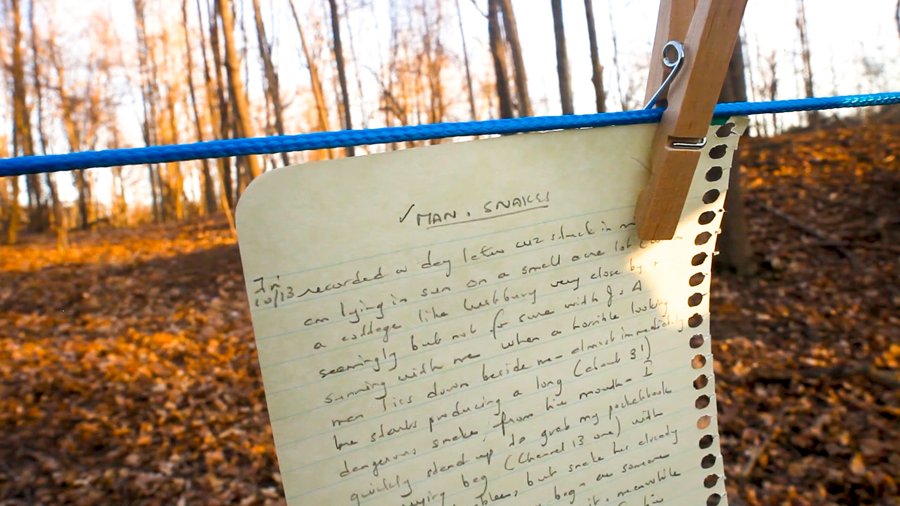 ✓ MAN. SNAKES
Fri recorded a day later cuz stuck in m
10/13 am lying in sun on a small acre lot
a college like Westbury very close by
seemingly but not for sure with J. A
sunning with me when a horrible looking
man lies down beside me - almost immediately
he starts producing a long (about 3')
dangerous snake from his mouth - I
quickly stand up to grab my pocketbook
bag (Channel 13 one) with
but snake has already
bag - as someone
it, meanwhile